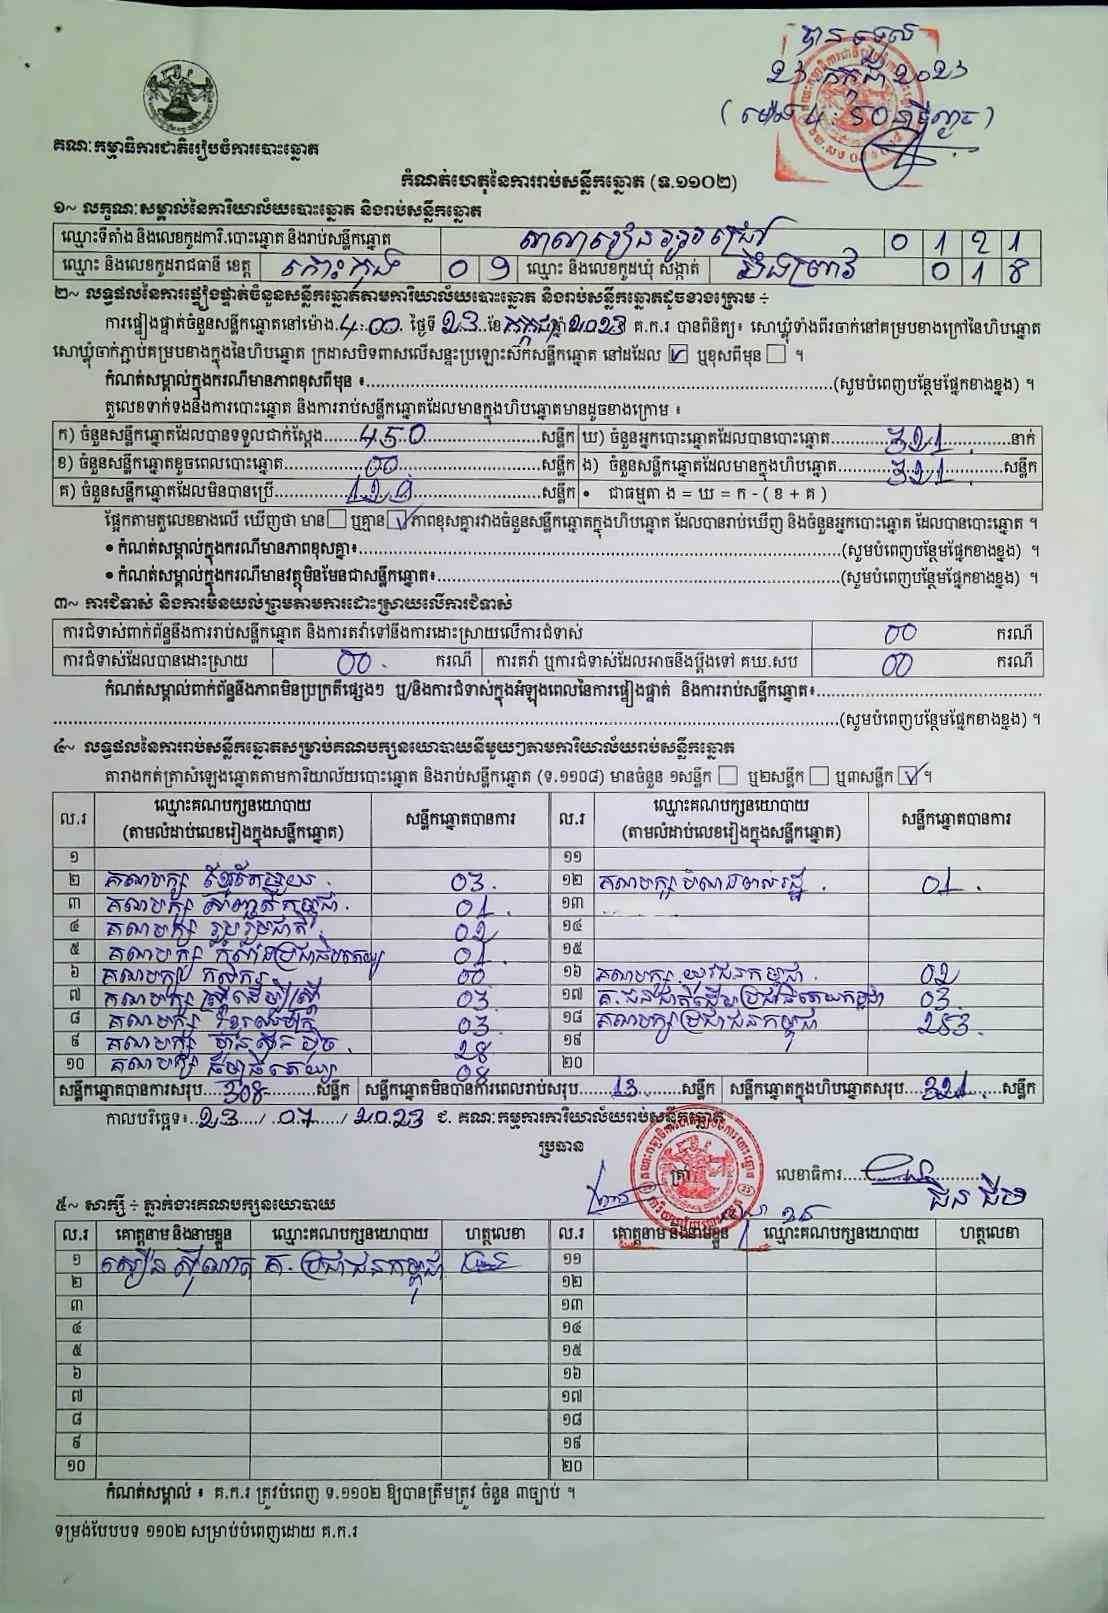 បានទទួល
២៦ កក្កដា ២០២៦
គណៈកម្មាធិការជាតិរៀបចំការបោះឆ្នោត
កំណត់ហេតុនៃការរាប់សន្លឹកឆ្នោត (ទ.១១០២)
១~ លក្ខណៈសម្គាល់នៃការិយាល័យបោះឆ្នោត និងរាប់សន្លឹកឆ្នោត
ឈ្មោះទីតាំង និងលេខកូដការិ.បោះឆ្នោត និងរាប់សន្លឹកឆ្នោត សាលារៀន 0 1 2 1
ឈ្មោះ និងលេខកូដរាជធានី ខេត្ត កោះកុង 0 9 ឈ្មោះ និងលេខកូដឃុំ សង្កាត់ 0 1 8
២~ លទ្ធផលនៃការផ្ទៀងផ្ទាត់ចំនួនសន្លឹកឆ្នោតតាមការិយាល័យបោះឆ្នោត និងរាប់សន្លឹកឆ្នោតដូចខាងក្រោម ÷
ការផ្ទៀងផ្ទាត់ចំនួនសន្លឹកឆ្នោតនៅម៉ោង 4:00 ថ្ងៃទី 23 ខែ កក្កដា ឆ្នាំ 2023 គ.ក.រ បានពិនិត្យ៖ សោឃ្លុំទាំងពីរចាក់នៅគម្របខាងក្រៅនៃហិបឆ្នោត
សោឃ្លុំចាក់ភ្ជាប់គម្របខាងក្នុងនៃហិបឆ្នោត ក្រដាសបិទពាសលើសន្ទះប្រឡោះស៊កសន្លឹកឆ្នោត នៅដដែល ☑ ឬខុសពីមុន ☐ ។
កំណត់សម្គាល់ក្នុងករណីមានភាពខុសពីមុន ៖ (សូមបំពេញបន្ថែមផ្នែកខាងខ្នង) ។
តួលេខទាក់ទងនឹងការបោះឆ្នោត និងការរាប់សន្លឹកឆ្នោតដែលមានក្នុងហិបឆ្នោតមានដូចខាងក្រោម ៖
ក) ចំនួនសន្លឹកឆ្នោតដែលបានទទួលជាក់ស្តែង 450 សន្លឹក ឃ) ចំនួនអ្នកបោះឆ្នោតដែលបានបោះឆ្នោត 321 នាក់
ខ) ចំនួនសន្លឹកឆ្នោតខូចពេលបោះឆ្នោត 00 សន្លឹក ង) ចំនួនសន្លឹកឆ្នោតដែលមានក្នុងហិបឆ្នោត 321 សន្លឹក
គ) ចំនួនសន្លឹកឆ្នោតដែលមិនបានប្រើ 129 សន្លឹក • ជាធម្មតា ង = ឃ = ក - ( ខ + គ )
ផ្អែកតាមតួលេខខាងលើ ឃើញថា មាន ☐ ឬគ្មាន ☑ ភាពខុសគ្នារវាងចំនួនសន្លឹកឆ្នោតក្នុងហិបឆ្នោត ដែលបានរាប់ឃើញ និងចំនួនអ្នកបោះឆ្នោត ដែលបានបោះឆ្នោត ។
• កំណត់សម្គាល់ក្នុងករណីមានភាពខុសគ្នា៖ (សូមបំពេញបន្ថែមផ្នែកខាងខ្នង) ។
• កំណត់សម្គាល់ក្នុងករណីមានវត្ថុមិនមែនជាសន្លឹកឆ្នោត៖ (សូមបំពេញបន្ថែមផ្នែកខាងខ្នង) ។
៣~ ការជំទាស់ និងការមិនយល់ព្រមតាមការដោះស្រាយលើការជំទាស់
ការជំទាស់ពាក់ព័ន្ធនឹងការរាប់សន្លឹកឆ្នោត និងការតវ៉ាទៅនឹងការដោះស្រាយលើការជំទាស់ 00 ករណី
ការជំទាស់ដែលបានដោះស្រាយ 00 ករណី ការតវ៉ា ឬការជំទាស់ដែលអាចនឹងប្តឹងទៅ គឃ.សប 00 ករណី
កំណត់សម្គាល់ពាក់ព័ន្ធនឹងភាពមិនប្រក្រតីផ្សេងៗ ឬ/និងការជំទាស់ក្នុងអំឡុងពេលនៃការផ្ទៀងផ្ទាត់ និងការរាប់សន្លឹកឆ្នោត៖
(សូមបំពេញបន្ថែមផ្នែកខាងខ្នង) ។
៤~ លទ្ធផលនៃការរាប់សន្លឹកឆ្នោតសម្រាប់គណបក្សនយោបាយនីមួយៗតាមការិយាល័យរាប់សន្លឹកឆ្នោត
តារាងកត់ត្រាសំឡេងឆ្នោតតាមការិយាល័យបោះឆ្នោត និងរាប់សន្លឹកឆ្នោត (ទ.១១០៨) មានចំនួន ១សន្លឹក ☐ ឬ២សន្លឹក ☐ ឬ៣សន្លឹក ☑ ។
ល.រ ឈ្មោះគណបក្សនយោបាយ (តាមលំដាប់លេខរៀងក្នុងសន្លឹកឆ្នោត) សន្លឹកឆ្នោតបានការ ល.រ ឈ្មោះគណបក្សនយោបាយ (តាមលំដាប់លេខរៀងក្នុងសន្លឹកឆ្នោត) សន្លឹកឆ្នោតបានការ
១ ១១
២ គណបក្ស ខ្មែរតែមួយ 03 ១២ គណបក្ស 01
៣ គណបក្ស កម្ពុជា 01 ១៣
៤ គណបក្ស រួបរួមជាតិ 02 ១៤
៥ គណបក្ស កំលាំងប្រជាធិបតេយ្យ ១៥
៦ គណបក្ស កសិករ 00 ១៦ គណបក្ស យុវជនកម្ពុជា 02
៧ គណបក្ស ស្ត្រីដើម្បីស្ត្រី 03 ១៧ គ. ជនជាតិដើមប្រជាធិបតេយ្យកម្ពុជា 03
៨ គណបក្ស 03 ១៨ គណបក្សប្រជាជនកម្ពុជា 253
៩ គណបក្ស ហ៊្វុនស៊ិនប៉ិច 28 ១៩
១០ គណបក្ស ធម្មាធិបតេយ្យ 08 ២០
សន្លឹកឆ្នោតបានការសរុប 308 សន្លឹក សន្លឹកឆ្នោតមិនបានការពេលរាប់សរុប 13 សន្លឹក សន្លឹកឆ្នោតក្នុងហិបឆ្នោតសរុប 321 សន្លឹក
កាលបរិច្ឆេទ៖ 23 / 07 / 2023 ជ. គណៈកម្មការការិយាល័យរាប់សន្លឹកឆ្នោត
ប្រធាន
ត្រា លេខាធិការ
ជិន ជីម
៥~ សាក្សី ÷ ភ្នាក់ងារគណបក្សនយោបាយ
ល.រ គោត្តនាម និងនាមខ្លួន ឈ្មោះគណបក្សនយោបាយ ហត្ថលេខា ល.រ គោត្តនាម និងនាមខ្លួន ឈ្មោះគណបក្សនយោបាយ ហត្ថលេខា
១ គ. ប្រជាជនកម្ពុជា ១១
២ ១២
៣ ១៣
៤ ១៤
៥ ១៥
៦ ១៦
៧ ១៧
៨ ១៨
៩ ១៩
១០ ២០
កំណត់សម្គាល់ ៖ គ.ក.រ ត្រូវបំពេញ ទ.១១០២ ឱ្យបានត្រឹមត្រូវ ចំនួន ៣ច្បាប់ ។
ទម្រង់បែបបទ ១១០២ សម្រាប់បំពេញដោយ គ.ក.រ